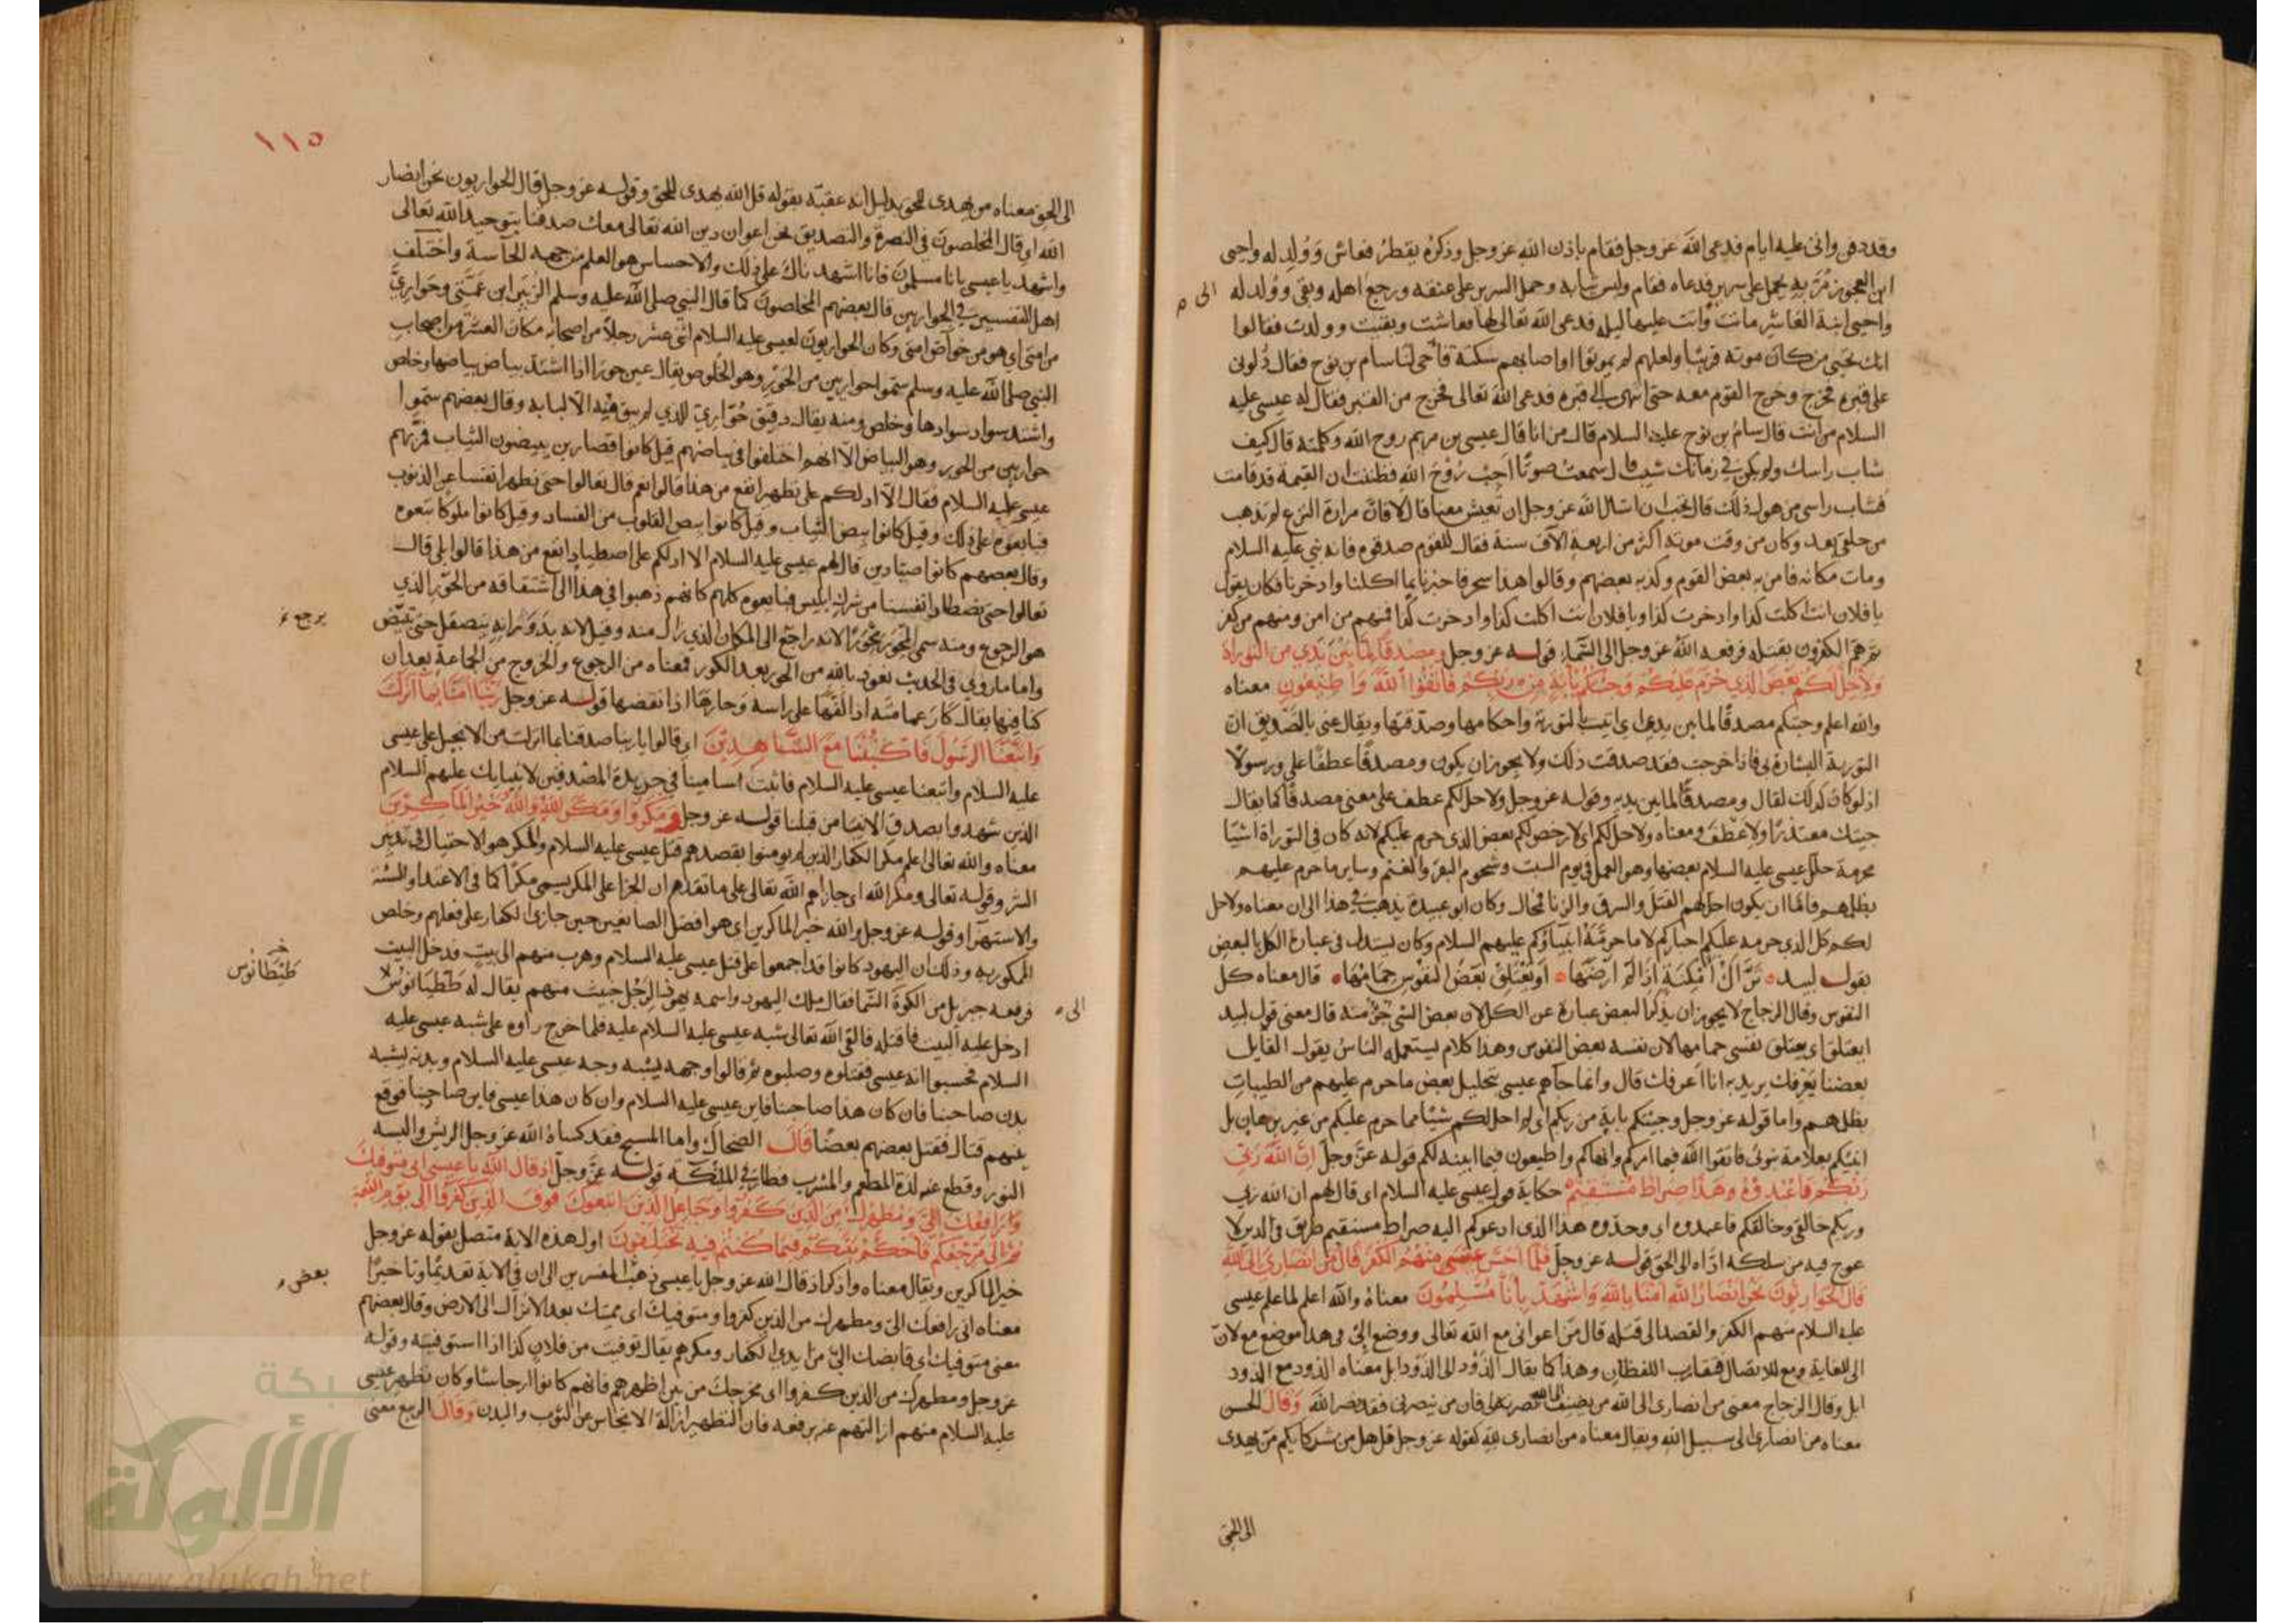 وقد دفن واتى عليه ايام فدعى الله عز وجل فقام باذن الله عز وجل وذكره يقطر فعاش وولد له واحيى
ابن العجوز مر به يحمل على سرير فدعاه فقام ولبس ثيابه وحمل السرير على عنقه ورجع اهله وبقى وولد له
الى
واحيى ابنة العاشر ماتت واتت عليها ليلة فدعى الله تعالى لها فعاشت وبقيت وولدت فقالوا
انك تحيي من كان موته قريبا ولعلهم لم يموتوا او اصابهم سكتة فاحى لنا سام بن نوح فقال دلوني
على قبره فخرج وخرج القوم معه حتى انتهى الى قبره فدعى الله تعالى فخرج من القبر فقال له عيسى عليه
السلام من انت قال سام بن نوح عليه السلام قال من انا قال عيسى بن مريم روح الله وكلمته قال كيف
شاب راسك ولم يكن في زمانك شيب قال سمعت صوتا اجب روح الله فظننت ان القيمة قد قامت
فشاب راسي من هول ذلك قال تحب ان اسال الله عز وجل ان تعيش معنا قال لا فان مرارة النزع لم تذهب
من حلقي بعد وكان من وقت موته اكثر من اربعة الاف سنة فقال للقوم صدقوه فانه نبي عليه السلام
ومات مكانه فامن به بعض القوم وكذبه بعضهم وقالوا هذا سحر فاخبرنا بما اكلنا وادخرنا فكان يقول
يا فلان انت اكلت كذا وادخرت كذا ويا فلان انت اكلت كذا وادخرت كذا فمنهم من امن ومنهم من كفر
ثم هم الكفرون بقتله فرفعه الله عز وجل الى السماء قوله عز وجل ومصدقا لما بين يدي من التوراة
ولاحل لكم بعض الذي حرم عليكم وجئتكم بآية من ربكم فاتقوا الله واطيعون معناه
والله اعلم وجئتكم مصدقا لما بين يدي اى اتيت التورية واحكامها وصدقتها ويقال عنى بالتصديق ان
التورية البشارة بي فاذا خرجت فقد صدقت ذلك ولا يجوز ان يكون ومصدقا عطفا على ورسولا
اذ لو كان كذلك لقال ومصدقا لما بين يديه وقوله عز وجل ولاحل لكم عطف على معنى مصدقا كما يقال
جيتك معتذرا ولاعطف ومعناه ولاحل لكم اى لارخص لكم بعض الذي حرم عليكم لانه كان في التوراة اشيا
محرمة حلل عيسى عليه السلام بعضها وهو العمل في يوم السبت وشحوم البقر والغنم وساير ما حرم عليهم
بظلمهم فاما ان يكون احل لهم القتل والسرق والزنا فمحال وكان ابو عبيدة يذهب في هذا الى ان معناه ولاحل
لكم كل الذي حرمه عليكم احباركم لا ما حرمه انبياؤكم عليهم السلام وكان يستدل في عبارة الكل بالبعض
بقول لبيد تراك امكنة اذا لم ارضها او يعتلق بعض النفوس حمامها قال معناه كل
النفوس وقال الزجاج لا يجوز ان يذكر البعض عبارة عن الكل لان بعض الشي جزء منه قال معنى قول لبيد
او يعتلق اى يعتلق نفسى حمامها لان نفسه بعض النفوس وهذا كلام يستعمله الناس يقول القايل
بعضنا يعرفك يريد به انا اعرفك قال وانما جاهم عيسى بتحليل بعض ما حرم عليهم من الطيبات
بظلمهم واما قوله عز وجل وجئتكم باية من ربكم اى لم احل لكم شيئا مما حرم عليكم من غير برهان بل
اتيتكم بعلامة نبوتي فاتقوا الله فيما امركم وانهاكم واطيعون فيما ابينه لكم قوله عز وجل ان الله ربي
وربكم فاعبدوه وهذا صراط مستقيم حكاية قول عيسى عليه السلام اى قال لهم ان الله ربي
وربكم خالقي وخالقكم فاعبدوه اى وحدوه هذا الذي ادعوكم اليه صراط مستقيم طريق في الدين لا
عوج فيه من سلكه اداه الى الحق قوله عز وجل فلما احس عيسى منهم الكفر قال من انصاري الى الله
قال الحواريون نحن انصار الله امنا بالله واشهد بانا مسلمون معناه والله اعلم لما علم عيسى
عليه السلام منهم الكفر والقصد الى قتله قال من اعواني مع الله تعالى ووضع الى في هذا موضع مع لان
الى للغاية ومع للاتصال فتقارب اللفظان وهذا كما يقال الذود الى الذود ابل معناه الذود مع الذود
ابل وقال الزجاج معنى من انصاري الى الله من يضيف نصرته الى فان من نصرني فقد نصر الله وقال الحسن
معناه من انصاري الى سبيل الله ويقال معناه من انصاري لله كقوله عز وجل قل هل من شركايكم من يهدى
الى الحق
١١٥
الى الحق معناه من يهدى للحق بدليل انه عقبه بقوله قل الله يهدى للحق وقوله عز وجل قال الحواريون نحن انصار
الله اى قال المخلصون في النصرة والتصديق نحن اعوان دين الله تعالى معك صدقنا بتوحيد الله تعالى
واشهد يا عيسى بانا مسلمون فانا اشهدناك على ذلك والاحساس هو العلم من جهة الحاسة واختلف
اهل التفسير في الحواريين قال بعضهم المخلصون كما قال النبي صلى الله عليه وسلم الزبير ابن عمتي وحواريي
من امتي اى هو من خواص امتي وكان الحواريون لعيسى عليه السلام اثنى عشر رجلا من اصحابه مكان العشرة من اصحاب
النبي صلى الله عليه وسلم سموا حواريين من الحور وهو الخلوص يقال عين حورا اذا اشتد بياض بياضها وخلص
واشتد سواد سوادها وخلص ومنه يقال دقيق حواري للذي لم يبق فيه الا لبابه وقال بعضهم سموا
حواريين من الحور وهو البياض الا انهم اختلفوا في بياضهم قيل كانوا قصارين يبيضون الثياب فمر بهم
عيسى عليه السلام فقال الا ادلكم على تطهير انفع من هذا قالوا نعم قال تعالوا حتى نطهر انفسنا من الذنوب
فبايعوه على ذلك وقيل كانوا بيض الثياب وقيل كانوا بيض القلوب من الفساد وقيل كانوا ملوكا تبعوه
وقال بعضهم كانوا صيادين قال لهم عيسى عليه السلام الا ادلكم على اصطياد انفع من هذا قالوا بلى قال
تعالوا حتى نصطاد انفسنا من شرك ابليس فبايعوه كلهم كانهم ذهبوا في هذا الى اشتقاقه من الحور الذي
هو الرجوع ومنه سمى المحور محورا لانه راجع الى المكان الذي زال منه وقيل لانه بدورانه ينصقل حتى تبيض
يرجع
واما ما روي في الحديث نعوذ بالله من الحور بعد الكور فمعناه من الرجوع والخروج من الجماعة بعد ان
كنا فيها يقال كار عمامته اذا لفها على راسه وحارها اذا نقضها قوله عز وجل ربنا آمنا بما انزلت
واتبعنا الرسول فاكتبنا مع الشاهدين اى قالوا يا ربنا صدقنا بما انزلت من الانجيل على عيسى
عليه السلام واتبعنا عيسى عليه السلام فاثبت اسامينا في جريدة المصدقين لانبيايك عليهم السلام
الذين شهدوا بصدق الانبيا من قبلنا قوله عز وجل ومكروا ومكر الله والله خير الماكرين
معناه والله تعالى اعلم مكر الكفار الذين لم يومنوا بقصدهم قتل عيسى عليه السلام والمكر هو الاحتيال في تدبير
الشر وقوله تعالى ومكر الله اى جازاهم الله تعالى على ما تقدم ان الجزا على المكر يسمى مكرا كما في الاعتدا والسيئة
والاستهزا وقوله عز وجل والله خير الماكرين اى هو افضل الصانعين حين جازى الكفار على فعلهم وخلص
الممكور به وذلك ان اليهود كانوا قد اجمعوا على قتل عيسى عليه السلام وهرب منهم الى بيت فدخل البيت
فرفعه جبريل من الكوة السما فقال ملك اليهود واسمه يهوذا لرجل خبيث منهم يقال له ططيانوس
الى
خ
طيطانوس
ادخل عليه البيت فاقتله فالقى الله تعالى شبه عيسى عليه السلام عليه فلما خرج راوه على شبه عيسى عليه
السلام فحسبوا انه عيسى فقتلوه وصلبوه ثم قالوا وجهه يشبه وجه عيسى عليه السلام وبدنه يشبه
بدن صاحبنا فان كان هذا صاحبنا فاين عيسى عليه السلام وان كان هذا عيسى فاين صاحبنا فوقع
بينهم قتال فقتل بعضهم بعضا قال الضحاك واما المسيح فقد كساه الله عز وجل الريش والبسه
النور وقطع عنه لذة المطعم والمشرب فطار في الملئكة قوله عز وجل اذ قال الله يا عيسى اني متوفيك
ورافعك الي ومطهرك من الذين كفروا وجاعل الذين اتبعوك فوق الذين كفروا الى يوم القيمة
ثم الي مرجعكم فاحكم بينكم فيما كنتم فيه تختلفون اول هذه الاية متصل بقوله عز وجل
خير الماكرين ويقال معناه واذكر اذ قال الله عز وجل يا عيسى ذهب المفسرين الى ان في الاية تقديما وتاخيرا
بعض
معناه اني رافعك الي ومطهرك من الذين كفروا ومتوفيك اى مميتك بعد الانزال الى الارض وقال بعضهم
معنى متوفيك اى قابضك الي من ايدي الكفار ومكرهم يقال توفيت من فلان كذا اذا استوفيته وقوله
عز وجل ومطهرك من الذين كفروا اى مخرجك من بين اظهرهم فانهم كانوا ارجاسا وكان تطهير عيسى
عليه السلام منهم ازالتهم عنه برفعه فان التطهير ازالة الانجاس عن الثوب والبدن وقال الربيع معنى
شبكة
الألوكة
www.alukah.net